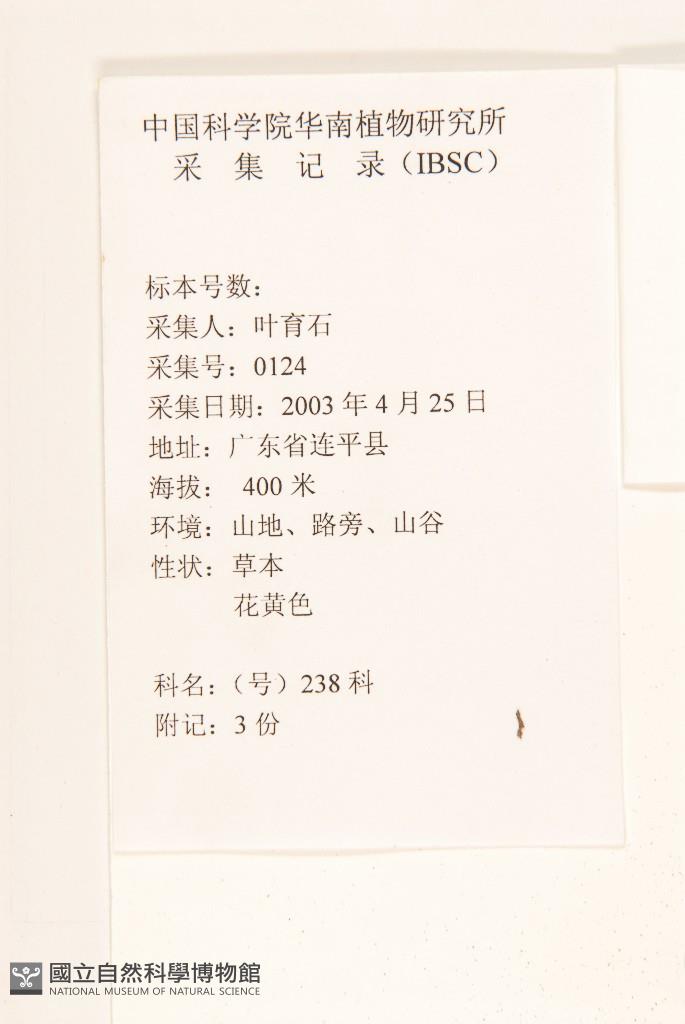 中国科学院华南植物研究所
采 集 记 录（IBSC）
标本号数：
采集人：叶育石
采集号：0124
采集日期：2003 年 4 月 25 日
地址：广东省连平县
海拔： 400 米
环境：山地、路旁、山谷
性状：草本
花黄色
科名：（号）238 科
附记：3 份
國立自然科學博物館
NATIONAL MUSEUM OF NATURAL SCIENCE